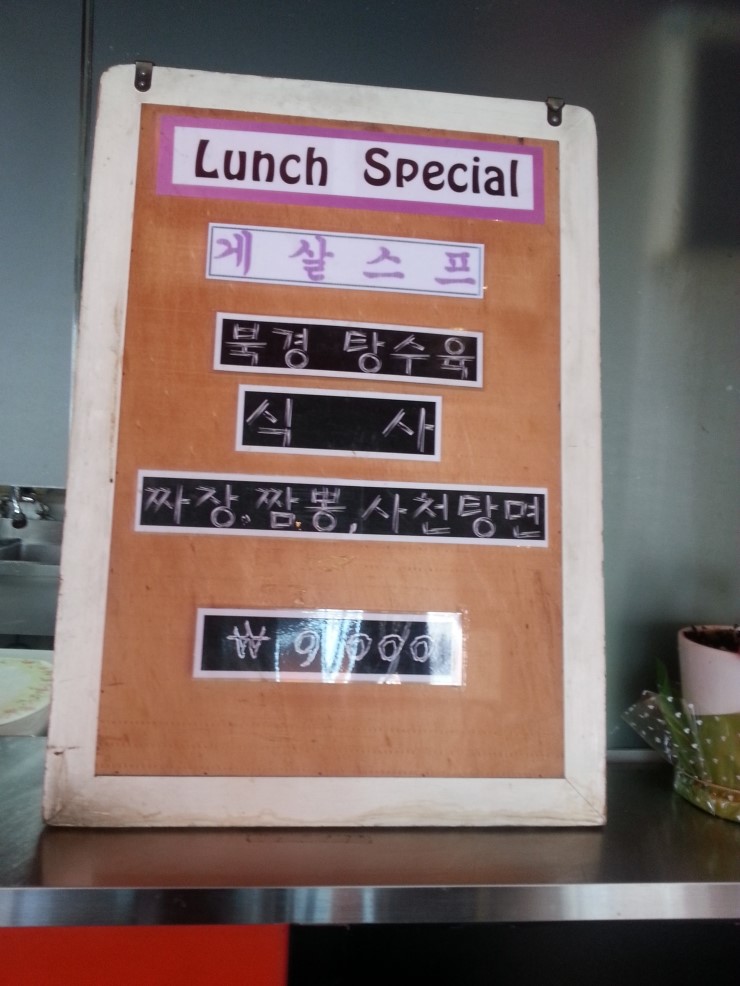 Lunch Special
게 살 스 프
북경 탕수육
식 사
짜장,짬뽕,사천탕면
₩ 9,000